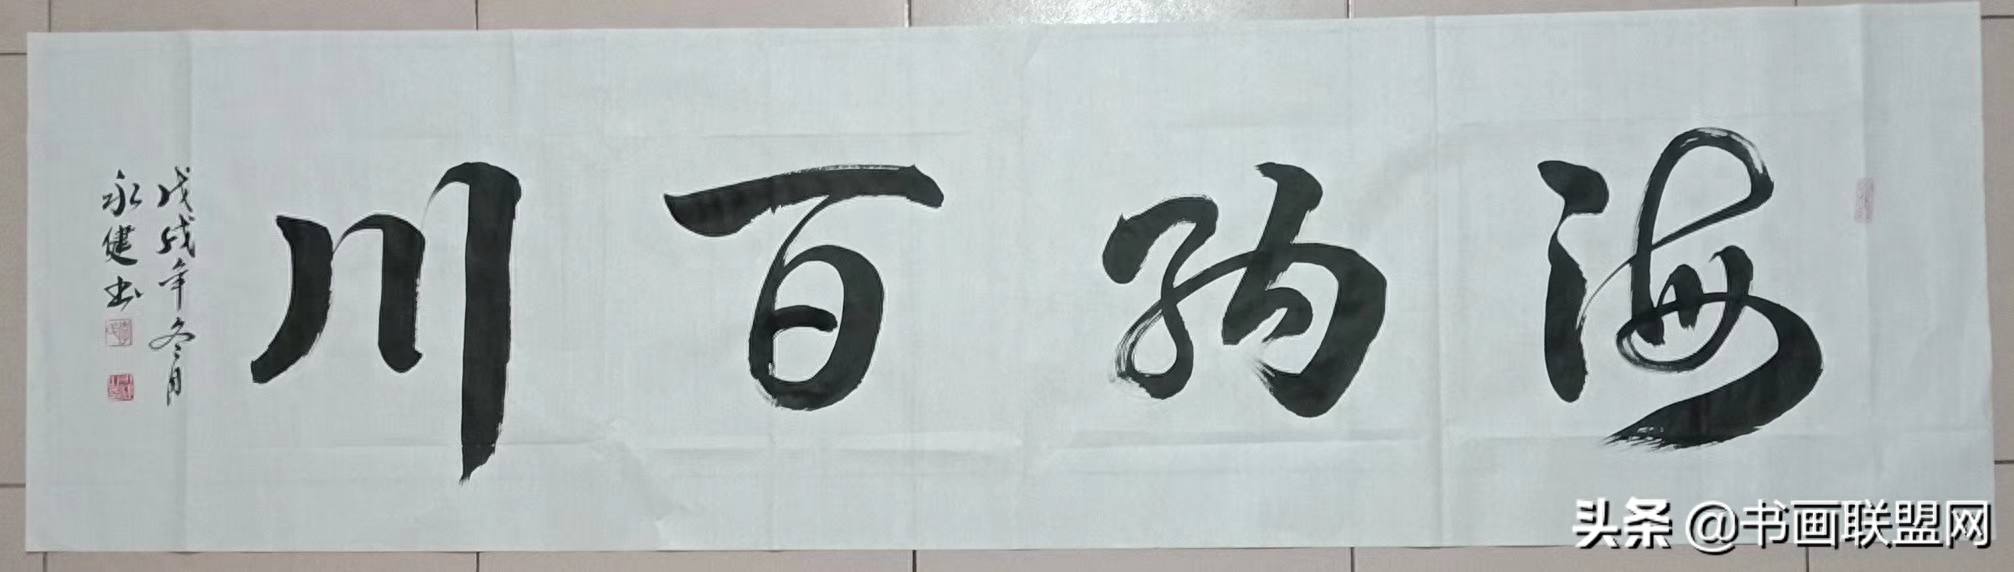 海纳百川
戊戌年冬月
永健书
头条 @书画联盟网